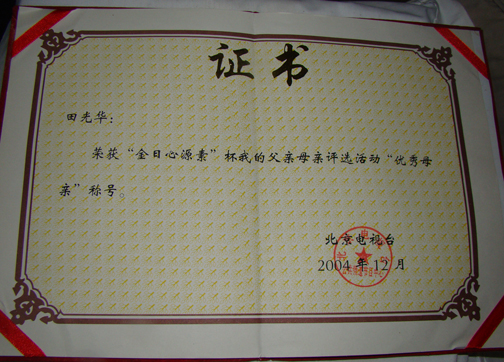 证书
田光华：
荣获“金日心源素”杯我的父亲母亲评选活动“优秀母
亲”称号。
北京电视台
2004年12月